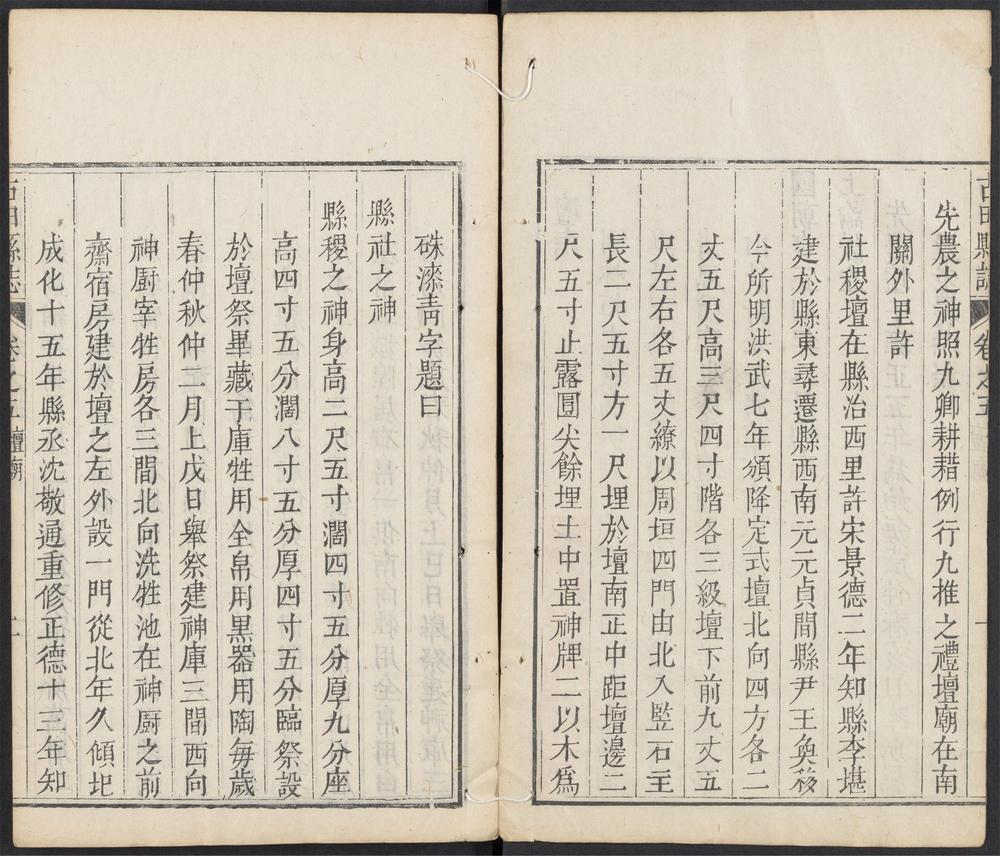 古田縣誌
卷之五
一
先農之神照九卿耕耤例行九推之禮壇廟在南
關外里許
社稷壇在縣治西里許宋景德二年知縣李堪
建於縣東尋遷縣西南元元貞間縣尹王奐移
今所明洪武七年頒降定式壇北向四方各二
丈五尺高三尺四寸階各三級壇下前九丈五
尺左右各五丈繚以周垣四門由北入監石主
長二尺五寸方一尺埋於壇南正中距壇邊二
尺五寸止露圓尖餘埋土中置神牌二以木爲
硃漆青字題曰
縣社之神
縣稷之神身高二尺五寸濶四寸五分厚九分座
高四寸五分濶八寸五分厚四寸五分臨祭設
於壇祭畢藏于庫牲用全帛用黑器用陶每歲
春仲秋仲二月上戊日舉祭建神庫三間西向
神厨宰牲房各三間北向洗牲池在神厨之前
齋宿房建於壇之左外設一門從北年久傾圯
成化十五年縣丞沈敬通重修正德十三年知
古田縣志
卷之五
壇廟
二